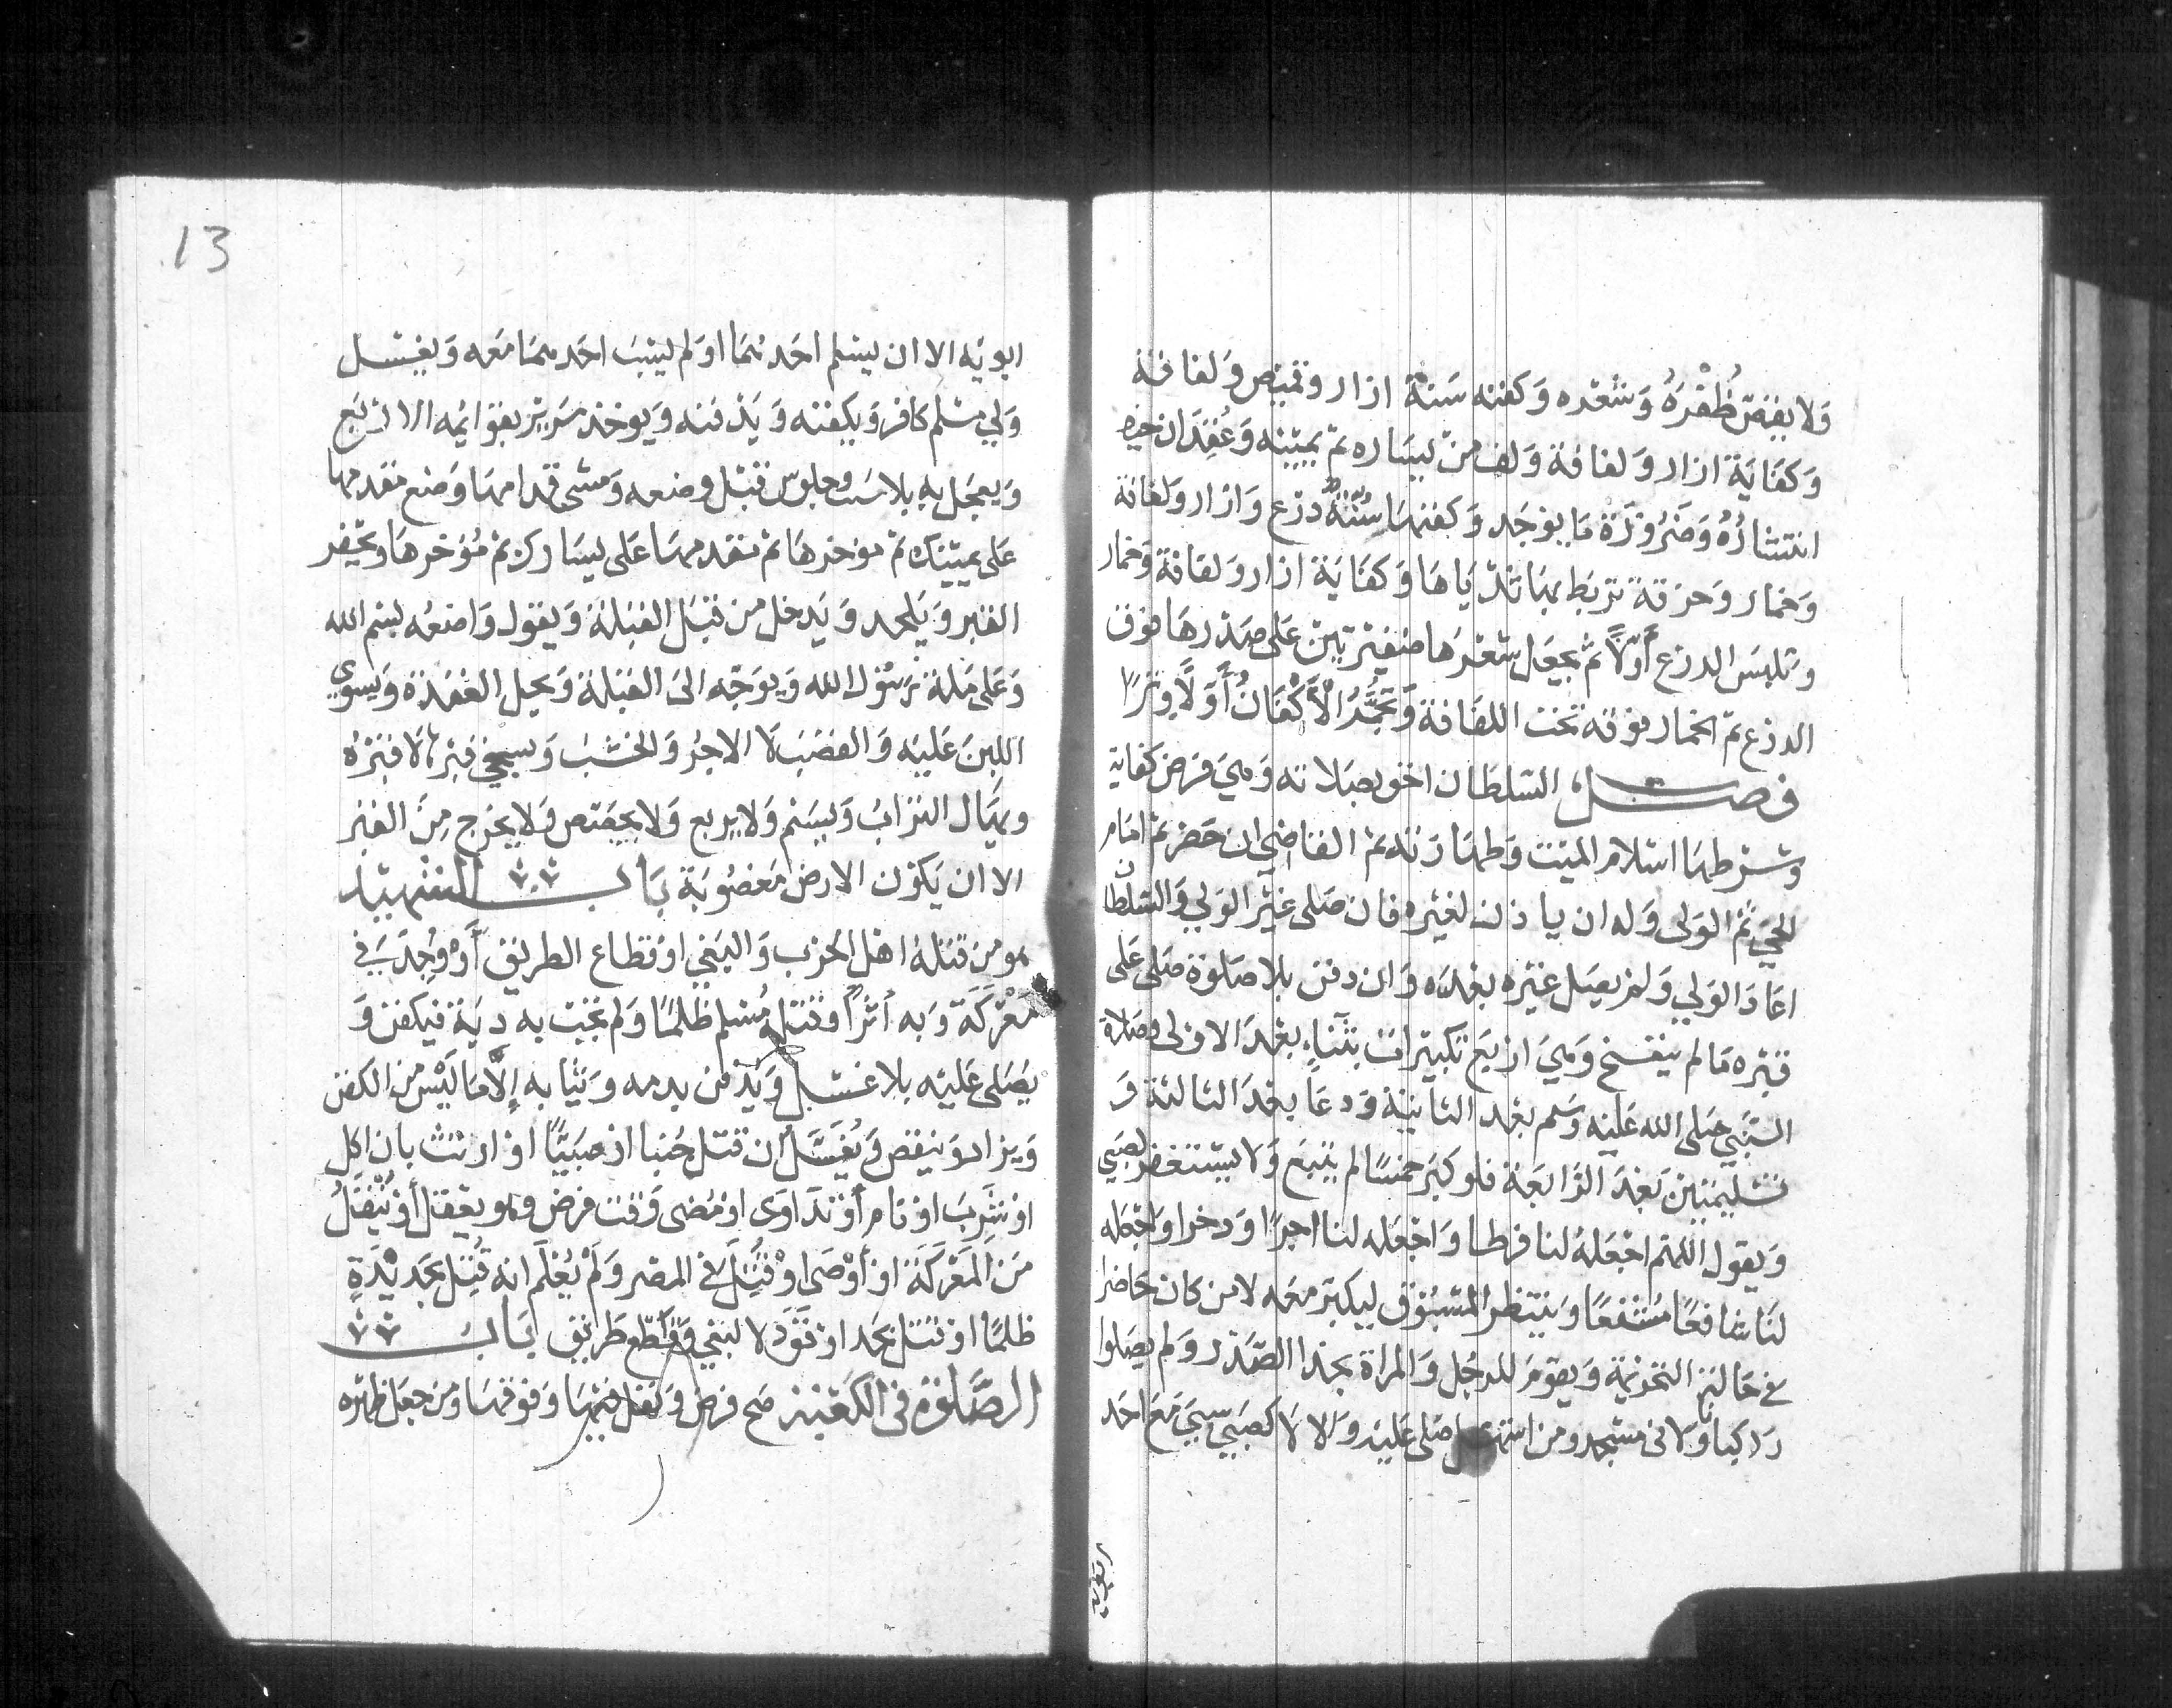 ولا يقص ظُفْرُهُ وشعره وكفنه سنة ازار وقميص ولفافة
وكفاية ازار ولفافة ولف من يساره ثم يمينه وعُقِدَ ان خيف
انتشارُهُ وضرورَة ما يوجد وكفنها سُنّةً درع وازار ولفافة
وخمار وخرقة تربط بها ثدياها وكفاية ازار ولفافة وخمار
وتلبس الدرع أوّلاً ثم يجعل شعرها ضفيرتين على صدرها فوق
الدرع ثم الخمار فوقه تحت اللفافة وتُجَمَّرُ الأكْفَانُ أَوّلًا وِترًا
فصل السلطان احق بصلاته وهي فرض كفاية
وشرطها اسلام الميت وطهارته ثم القاضي ان حضر ثم امام
الحي ثم الولى وله ان ياذن لغيره فان صلى غير الولي والسلطان
اعاد الولي ولم يصل غيره بعده وان دفن بلا صلوة صلى على
قبره ما لم يتفسخ وهي اربع تكبيرات بثناءٍ بعد الاولى وصلاة
النبي صلى الله عليه وسلم بعد الثانية ودعا بعد الثالثة و
تسليمتين بعد الرابعة فلو كبر خمسًا لم يتبع ولا يستغفر لصبي
ويقول اللهم اجعله لنا فرطا واجعله لنا اجرًا وذخرا واجعله
لنا شافعًا مُشفعًا وينتظر المسبوق ليكبر معه لا من كان حاضرا
في حالة التحريمة ويقوم للرجل والمراة بحذا الصدر ولم يصلوا
ركبانا ولا فى مسجد ومن استهل صلى عليه والا لا كصبي سبي مع احد
ابويه
13
ابويه الا ان يسلم احدهما او لم يسب احدهما معه ويغسل
ولي مسلم كافر ويكفنه ويدفنه ويوخذ سريره بقوائمه الاربع
ويعجل به بلا خبب وجلوس قبل وضعه ومشى قدامها وضع مقدمها
على يمينك ثم موخرها ثم مقدمها على يسارك ثم مُؤخرها ويحفر
القبر ويلحد ويدخل من قبل القبلة ويقول واضعه بسم الله
وعلى ملة رسول الله ويوجه الى القبلة ويحل العقدة ويسوي
اللبن عليه والقصب لا الاجر والخشب ويسجي قبرها لا قبرُه
ويهال التراب ويسنم ولا يربع ولا يجصص ولا يخرج مِن القبر
الا ان يكون الارض مغصُوبة باب الشهيد
هو من قتله اهل الحرب والبغي او قطاع الطريق أَوْ وُجِدَ في
مَعْرَكَة وبه أثرٌ أو قتله مُسلم ظلمًا ولم تجب به دية فيكفن و
يصلى عليه بلا غسل ويدفن بدمه وثيابه إلَّا ما لَيْسَ من الكفن
ويزاد وينقص ويُغَسَّلُ ان قتل جُنبا او صبيًّا او ارتث بان اكل
او شرب او نام أو تداوى او مضى وقت فرض وهو يعقل أو نُقِلَ
من المعركة او أَوْصَى او قُتِلَ في المصر ولم يُعْلَم انه قُتِل بحديدةٍ
ظلمًا او قتل بحد او قَوَد لا لبغي وقطع طريق باب
الصَّلوٰة فى الكعبة صح فرض ونفل فيها وفوقها ومن جعل ظهره